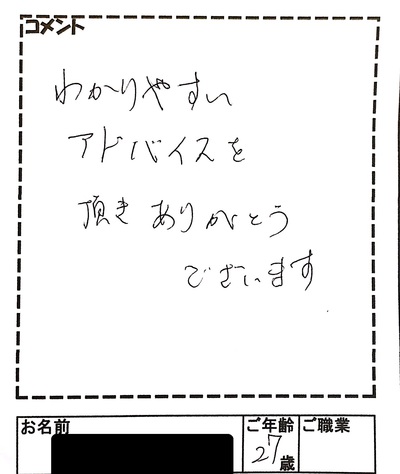 コメント
わかりやすい
アドバイスを
頂きありがとう
ございます
お名前 ご年齢 ご職業
27歳